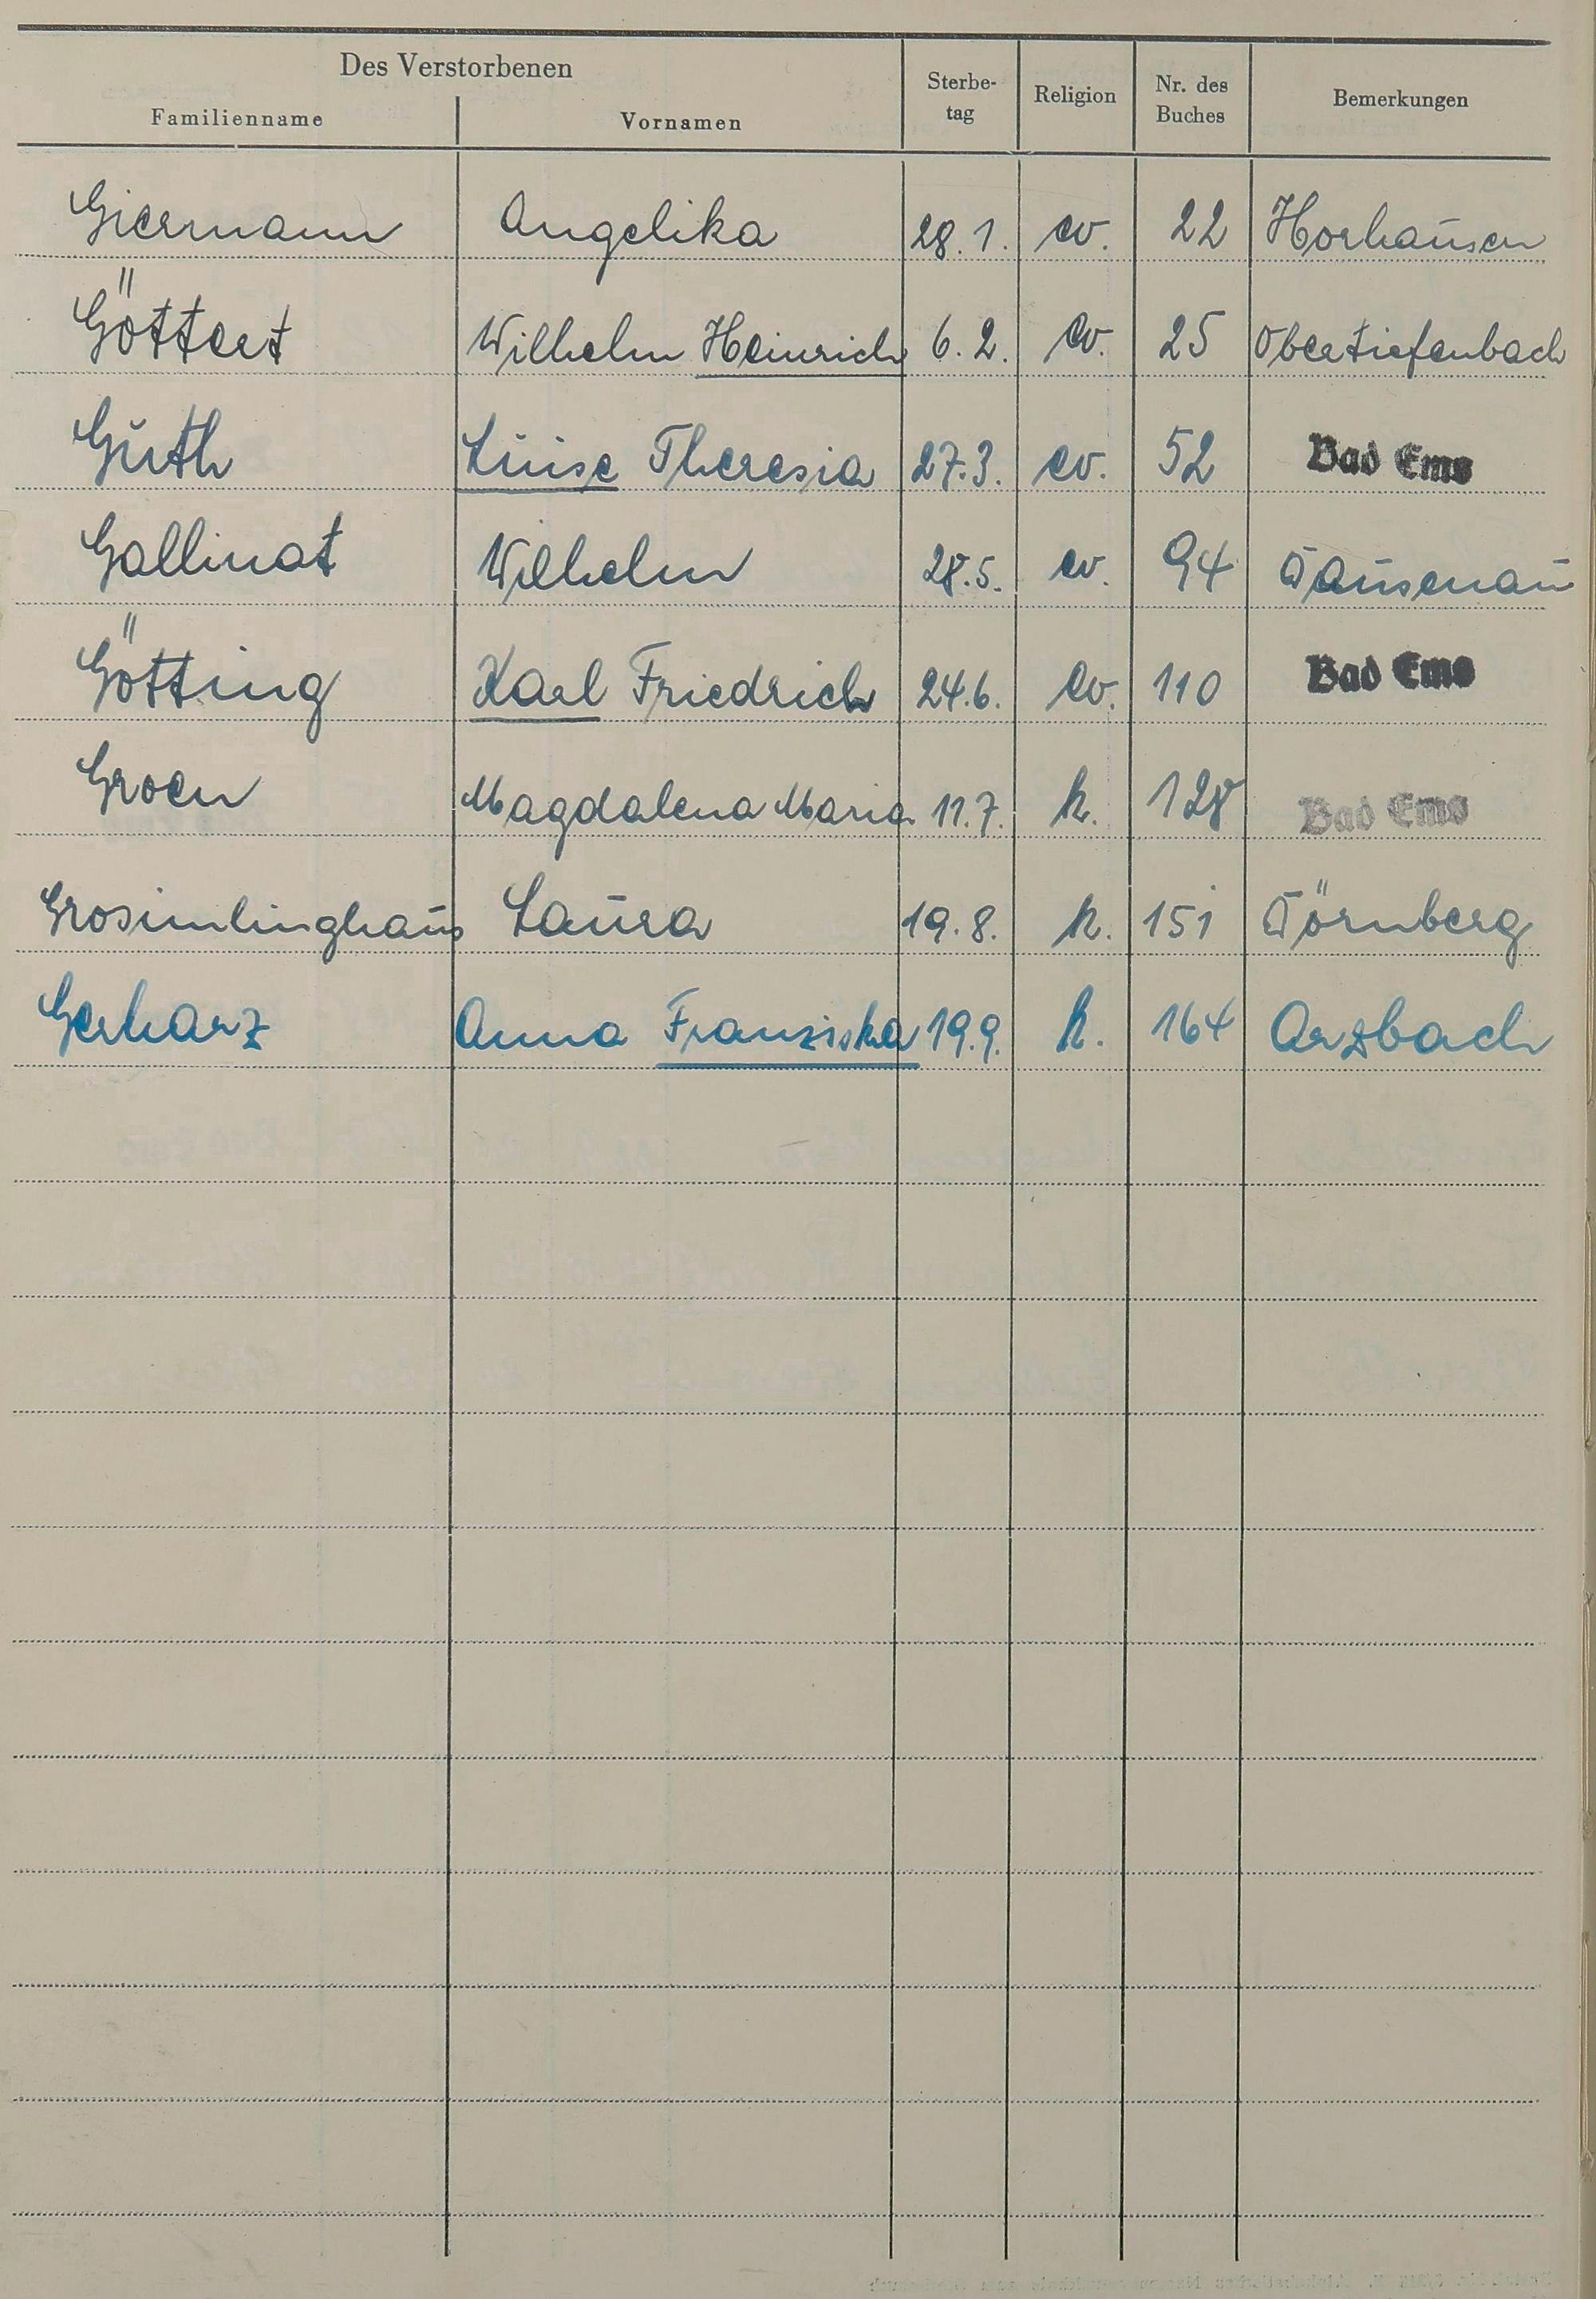 Des Verstorbenen
Familienname Vornamen Sterbe-tag Religion Nr. des Buches Bemerkungen
Giermann Angelika 28.1. ev. 22 Horhausen
Göttert Wilhelm Heinrich 6.2. ev. 25 Obertiefenbach
Guth Luise Theresia 27.3. ev. 52 Bad Ems
Gallinat Wilhelm 28.5. ev. 94 Dausenau
Götting Karl Friedrich 24.6. ev. 110 Bad Ems
Groen Magdalena Maria 11.7. k. 128 Bad Ems
Grosimlinghaus Laura 19.8. k. 151 Dörnberg
Gerharz Anna Franziska 19.9. k. 164 Arzbach